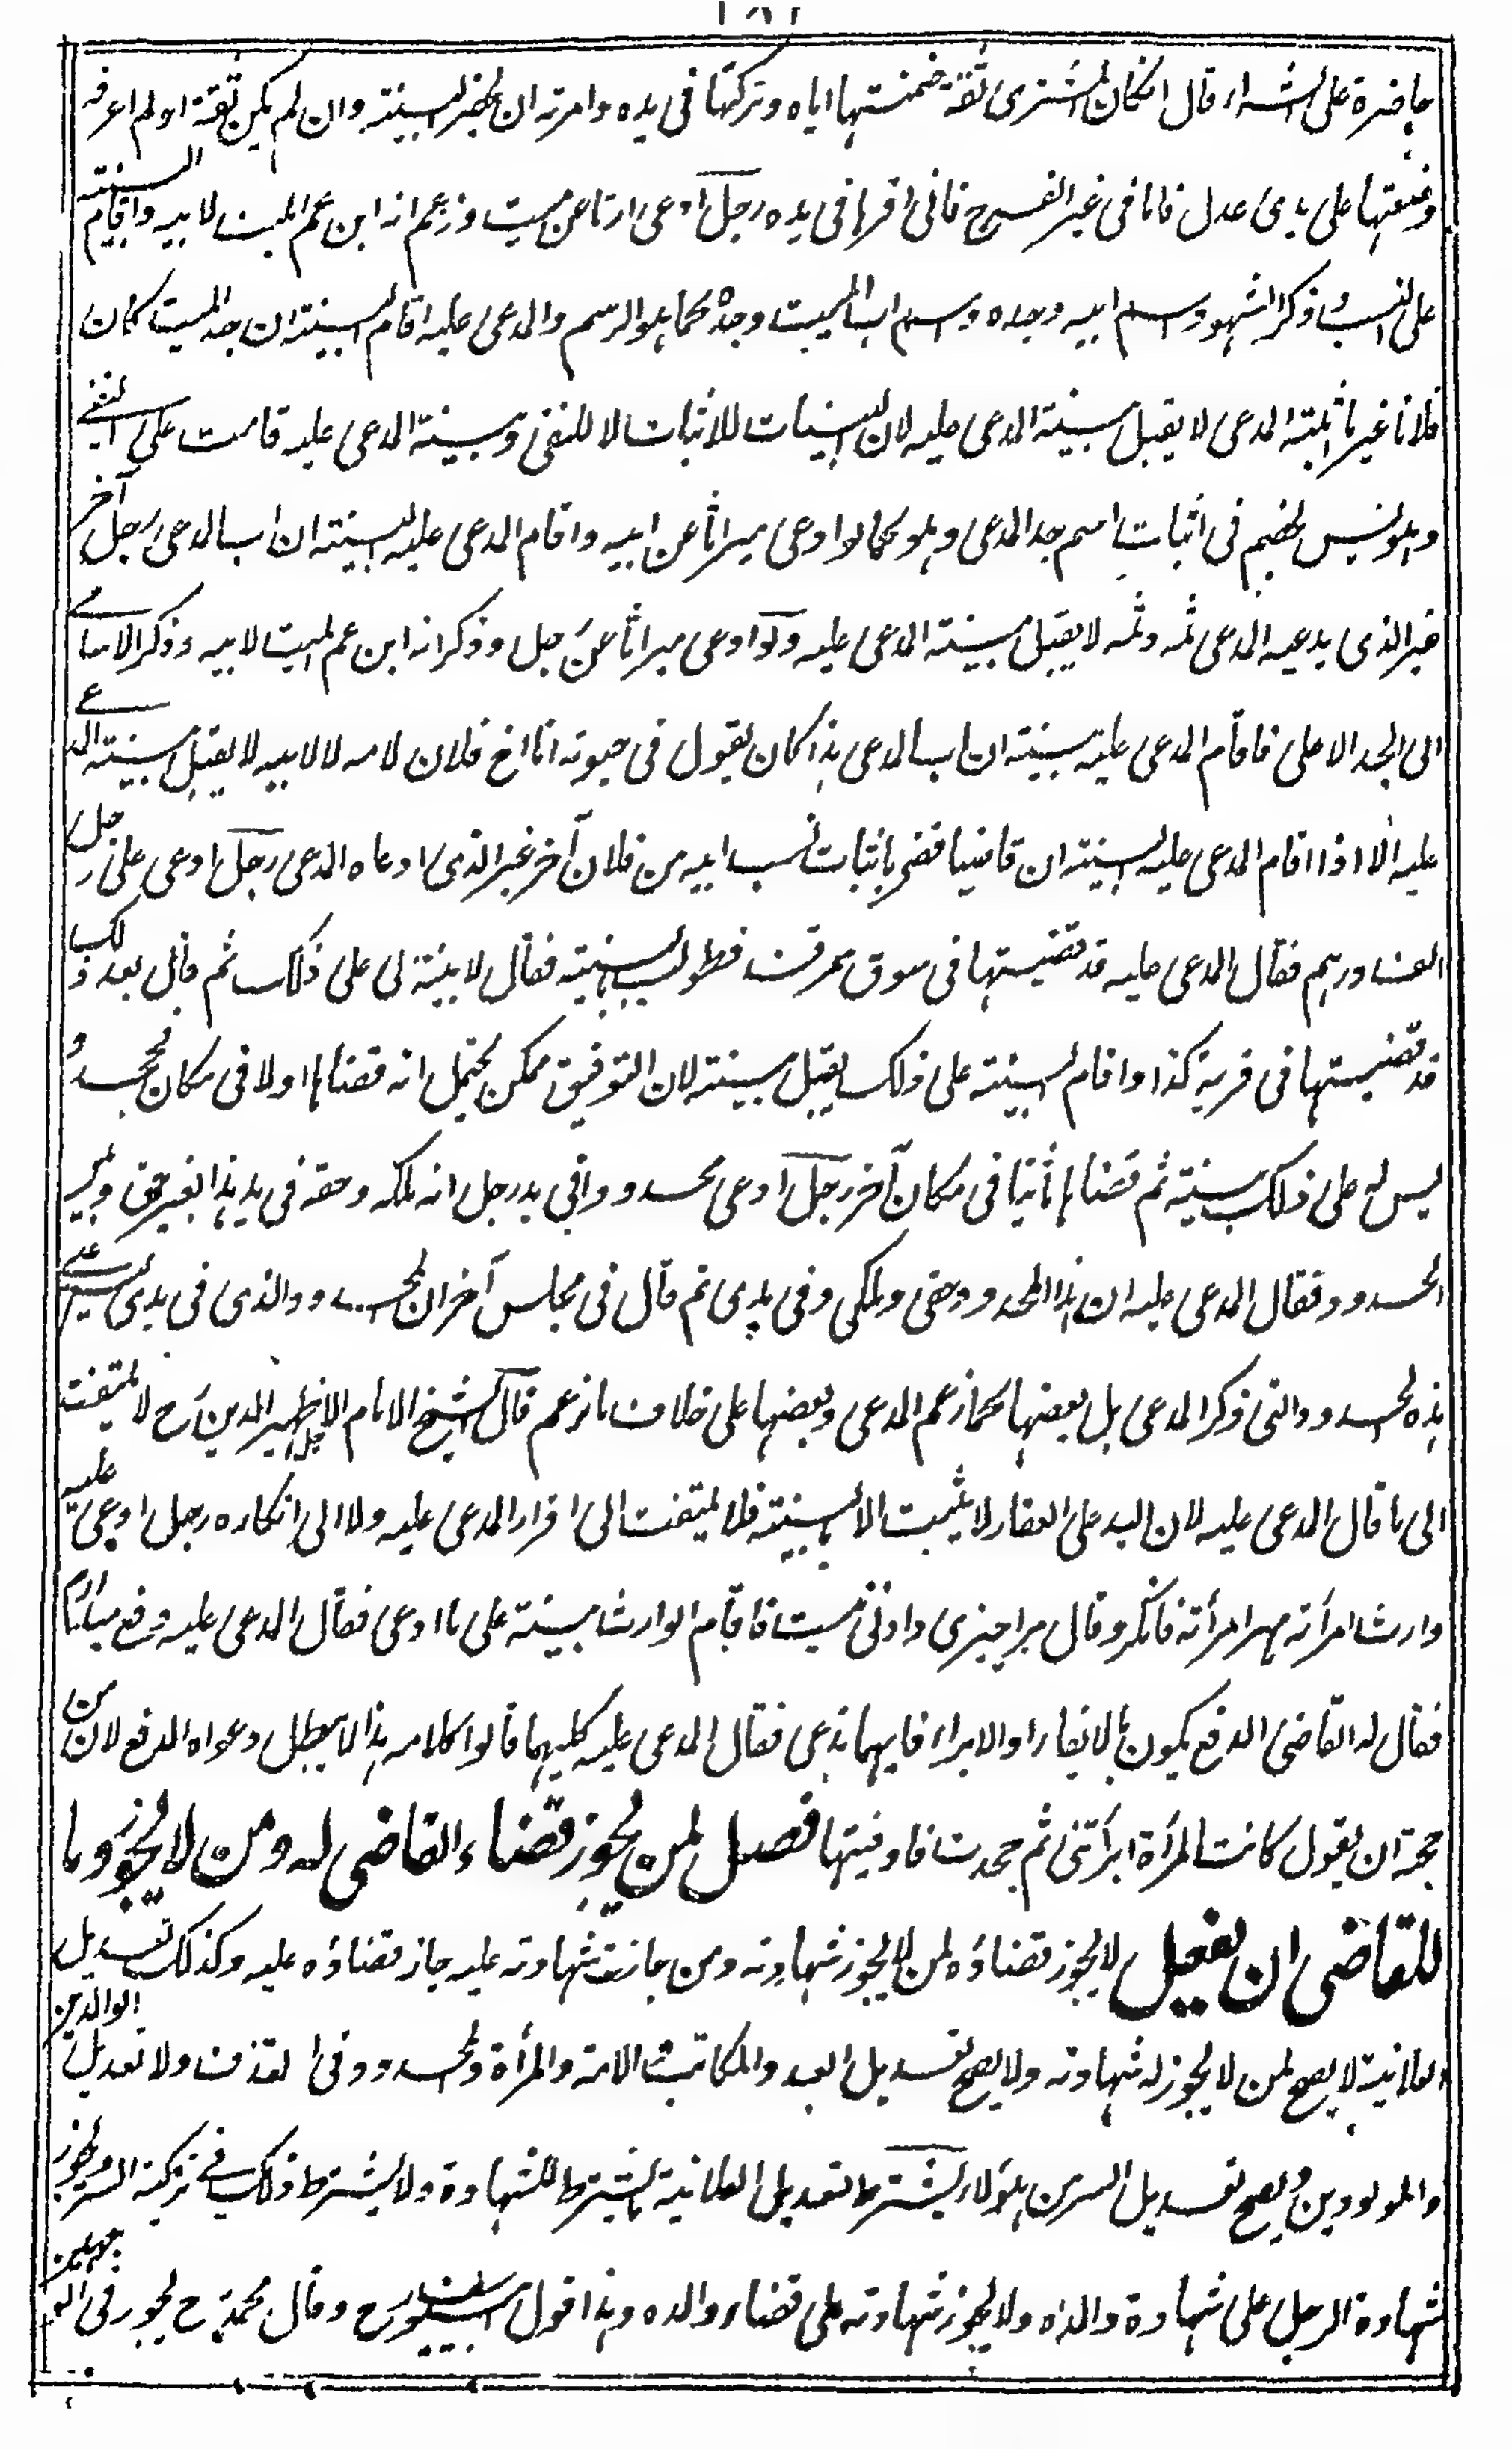 حاضرة على الشراء قال ان كان المشترى ثقة ضمنتها اياه وتركتها فى يده وامرته ان يحضر البينة وان لم يكن ثقة او لم اعرفه
وضعتها على يدى عدل فاما فى غير الفرج فانى اقرها فى يده رجل ادعى ارثا عن ميت وزعم انه ابن عم الميت لابيه واقام البينة
على النسب وذكر الشهود اسم ابيه وجده واسم اب الميت وجده كما هو الرسم والمدعى عليه اقام البينة ان جد الميت كان
فلانا غير ما اثبته المدعى لا يقبل بينة المدعى عليه لان البينات للاثبات لا للنفى وبينة المدعى عليه قامت على النفى
وهو ليس بخصم فى اثبات اسم جد المدعى وهو كما لو ادعى ميراثا عن ابيه واقام المدعى عليه البينة ان اب المدعى رجل آخر
غير الذى يدعيه المدعى ثمه وثمه لا يقبل بينة المدعى عليه ولو ادعى ميراثا عن رجل وذكر انه ابن عم الميت لابيه وذكر الاسامى
الى الجد الاعلى فاقام المدعى عليه بينة ان اب المدعى هذا كان يقول فى حيوته انا اخ فلان لامه لا لابيه لا يقبل بينة المدعى
عليه الا اذا اقام المدعى عليه البينة ان قاضيا قضى باثبات نسب ابيه من فلان آخر غير الذى ادعاه المدعى رجل ادعى على رجل
الف درهم فقال المدعى عليه قد قضيتها فى سوق سمرقند فطولب بالبينة فقال لا بينة لى على ذلك ثم قال بعد ذلك
قد قضيتها فى قرية كذا واقام البينة على ذلك يقبل بينته لان التوفيق ممكن يحتمل انه قضاها اولا فى مكان فجحد و
ليس له على ذلك بينة ثم قضاها ثانيا فى مكان آخر رجل ادعى محدودا فى يد رجل انه ملكه وحقه فى يد هذا بغير حق وبين
الحدود فقال المدعى عليه ان هذا المحدود حقى وملكى وفى يدى ثم قال فى مجلس آخر ان المحدود الذى فى يدى ليس على
هذه الحدود التى ذكر المدعى بل بعضها كما زعم المدعى وبعضها على خلاف ما زعم قال الشيخ الامام الاجل ظهير الدين رح لا يلتفت
الى ما قال المدعى عليه لان اليد على العقار لا يثبت الا بالبينة فلا يلتفت الى اقرار المدعى عليه ولا الى انكاره رجل ادعى عليه
وارث امرأته مهر امرأته فانكر وقال مرا چيزى دادنى نيست فاقام الوارث بينة على ما ادعى فقال المدعى عليه دفع
فقال له القاضى الدفع يكون بالايفاء او الابراء فايهما تدعى فقال المدعى عليه كليهما قالوا كلامه هذا لا يبطل دعواه الدفع لان من
حجته ان يقول كانت المرأة ابرأتنى ثم جحدت فاوفيتها فصل لمن يجوز قضاء القاضى له ومن لا يجوز وما
للقاضى ان يفعل لا يجوز قضاؤه لمن لا يجوز شهادته ومن جازت شهادته عليه جاز قضاؤه عليه وكذلك تعديل
العلانية لا يصح لمن لا يجوز له شهادته ولا يصح تعديل العبد والمكاتب والامة والمرأة والمحدود فى القذف ولا تعديل الوالدين
والمولودين ويصح تعديل السر من هؤلاء يشترط لتعديل العلانية ما يشترط للشهادة ولا يشترط ذلك فى تزكية السر ويجوز
شهادة الرجل على شهادة والده ولا يجوز شهادته على قضاء والده وهذا قول ابى يوسف رح وقال محمد رح يجوز فى